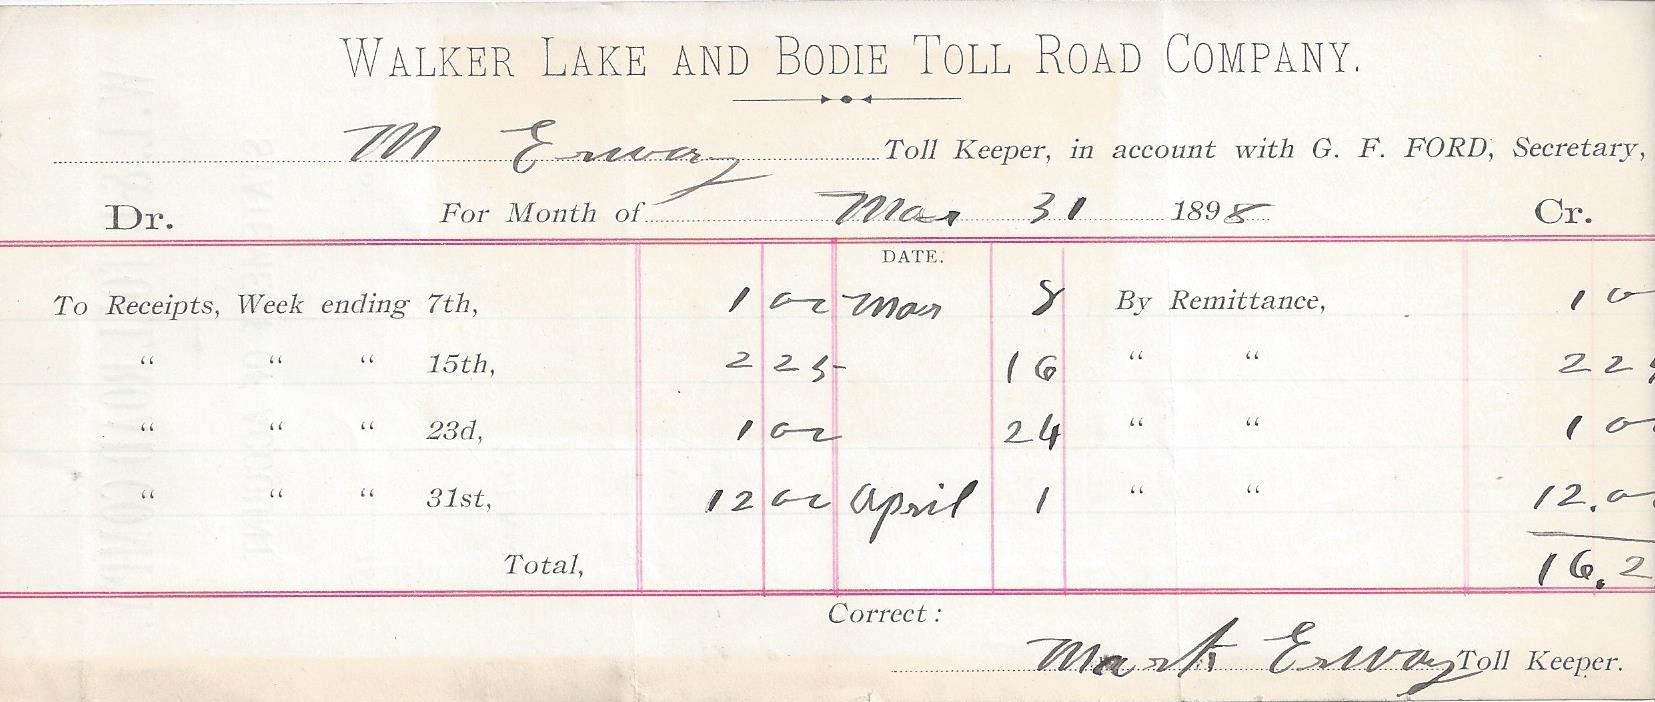 WALKER LAKE AND BODIE TOLL ROAD COMPANY.
M Erway Toll Keeper, in account with G. F. FORD, Secretary,
Dr. For Month of Mar 31 1898 Cr.
DATE.
To Receipts, Week ending 7th, 1 00 Mar 8 By Remittance, 1 0
" " " 15th, 2 25 16 " " 2 25
" " " 23d, 1 00 24 " " 1 0
" " " 31st, 12 00 April 1 " " 12.0
Total, 16.2
Correct:
Mark Erway Toll Keeper.